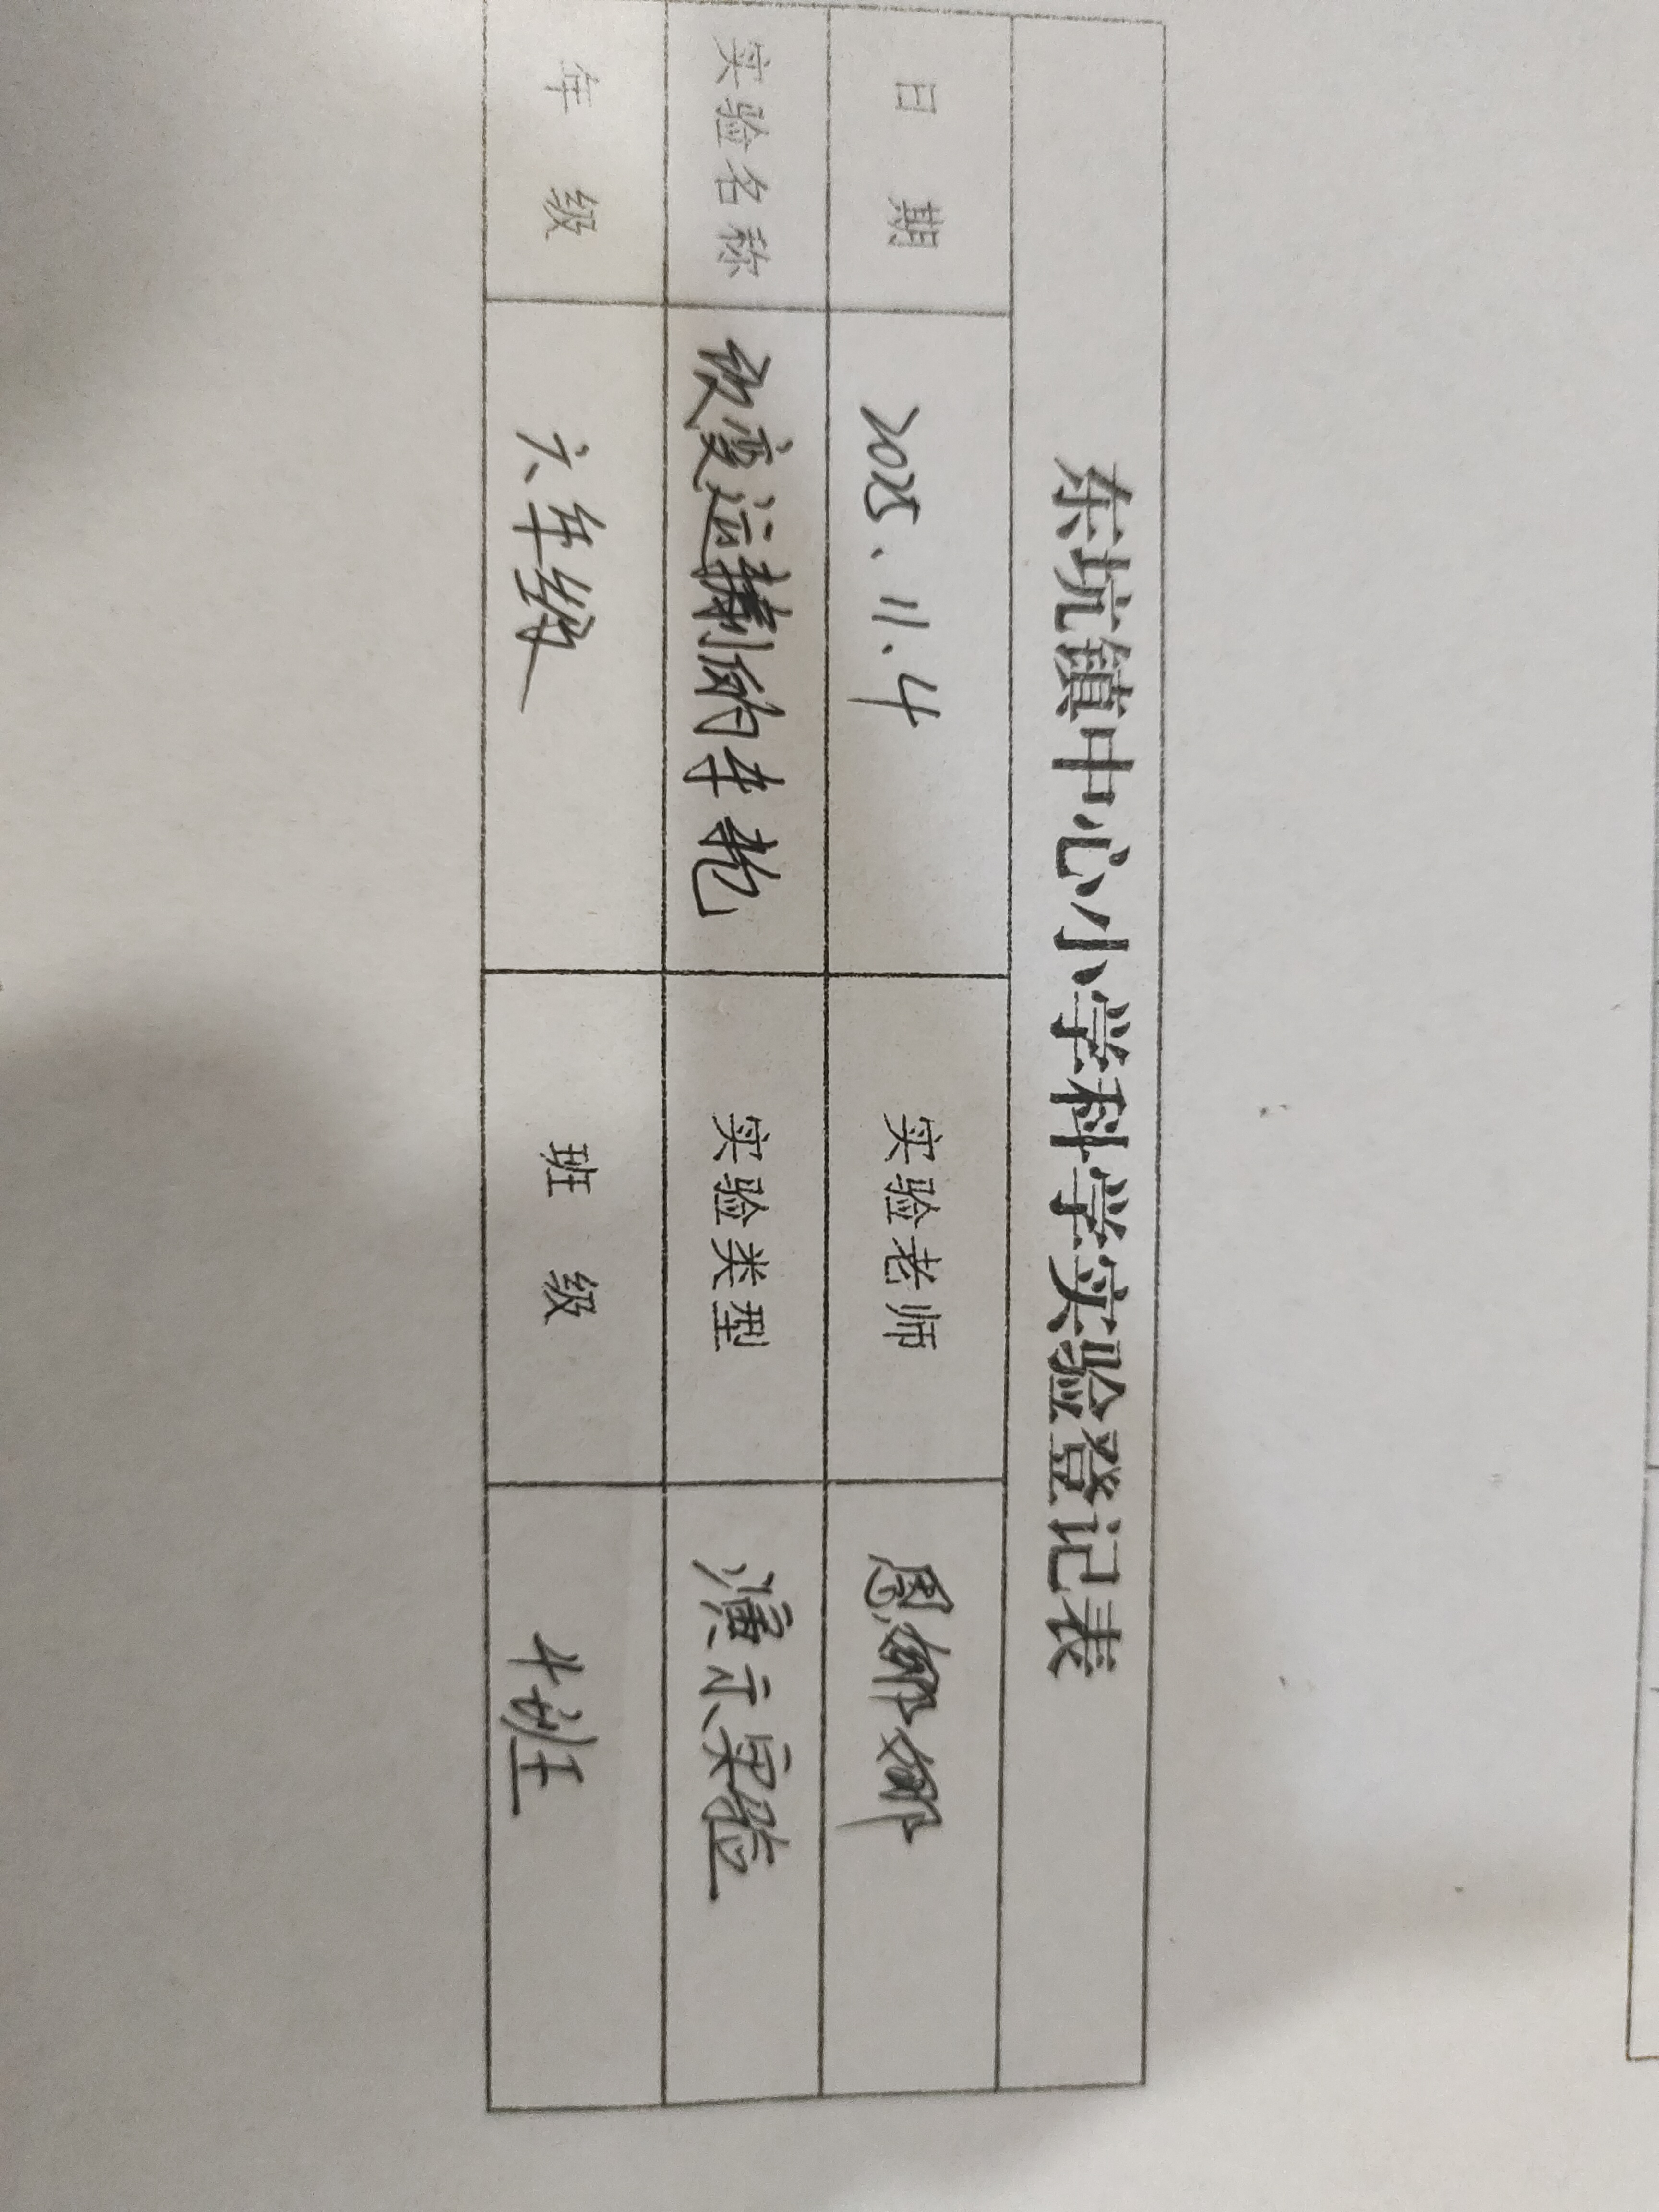 东坑镇中心小学科学实验登记表
日 期 2025.11.4 实验老师 恩娜娜
实验名称 改变运输的车轮 实验类型 演示实验
年 级 六年级 班 级 4班